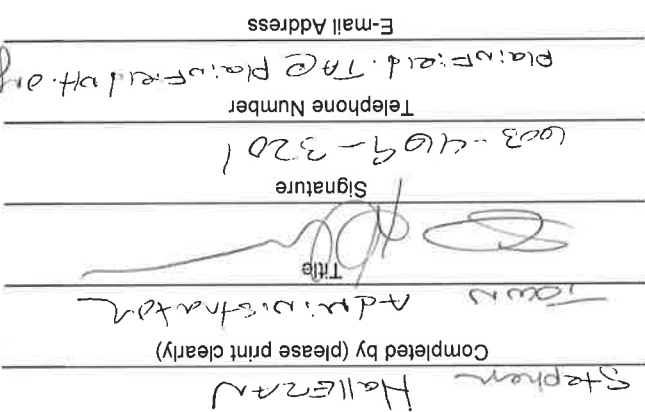 Stephen Halleran
Completed by (please print clearly)
Town Administrator
Title
Signature
603-469-3201
Telephone Number
Plainfield.TA@PlainfieldNH.org
E-mail Address